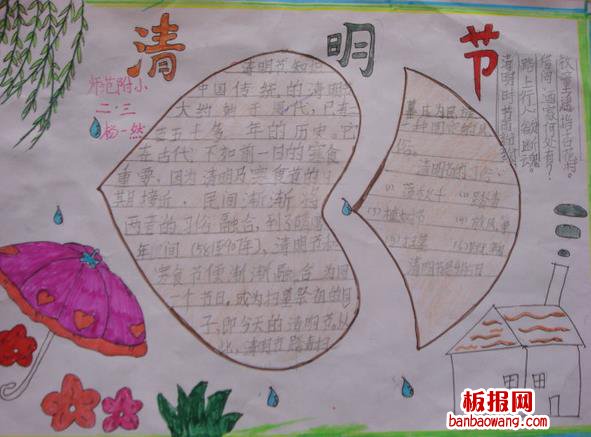 清明节
师范附小
二·三
杨一然
清明节知识
中国传统的清明节
大约始于周代，已有
二千五百多年的历史。它
在古代不如前一日的寒食
重要，因为清明及寒食节的日
期接近，民间渐渐将
两者的习俗融合，到了隋唐
年间(581至907年)，清明节和
寒食节便渐渐融合为同
一个节日，成为扫墓祭祖的日
子，即今天的清明节。从
此，清明节踏青扫
墓成为民
一种固定的风
俗。
清明节的习俗
(1)荡秋千 (2)踏青
(3)植树节 (4)放风筝
(5)扫墓 (6)
清明节是4月5日
清明时节雨纷纷
路上行人欲断魂。
借问酒家何处有？
牧童遥指杏花村。
板报网
banbaowang.com